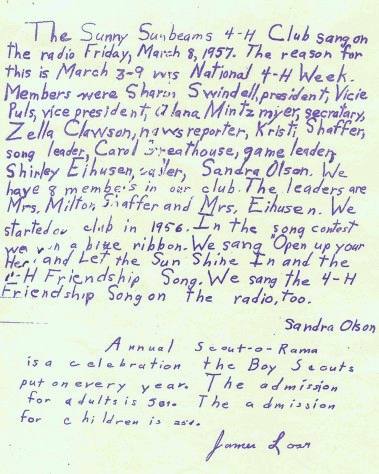 The Sunny Sunbeams 4-H Club sang on
the radio Friday, March 8, 1957. The reason for
this is March 3-9 was National 4-H Week.
Members were Sharon Swindell, president, Vicie
Puls, vice president, Alana Mintzmyer, secretary,
Zella Clawson, news reporter, Kristi Shaffer,
song leader, Carol Greathouse, game leader,
Shirley Eihusen, Sandra Olson. We
have 8 members in our club. The leaders are
Mrs. Milton Shaffer and Mrs. Eihusen. We
started our club in 1956. In the song contest
we won a blue ribbon. We sang "Open up your
Heart and Let the Sun Shine In and the
4-H Friendship Song. We sang the 4-H
Friendship Song on the radio, too.
Sandra Olson
Annual Scout-o-Rama
is a celebration the Boy Scouts
put on every year. The admission
for adults is 50¢. The admission
for children is 25¢.
James